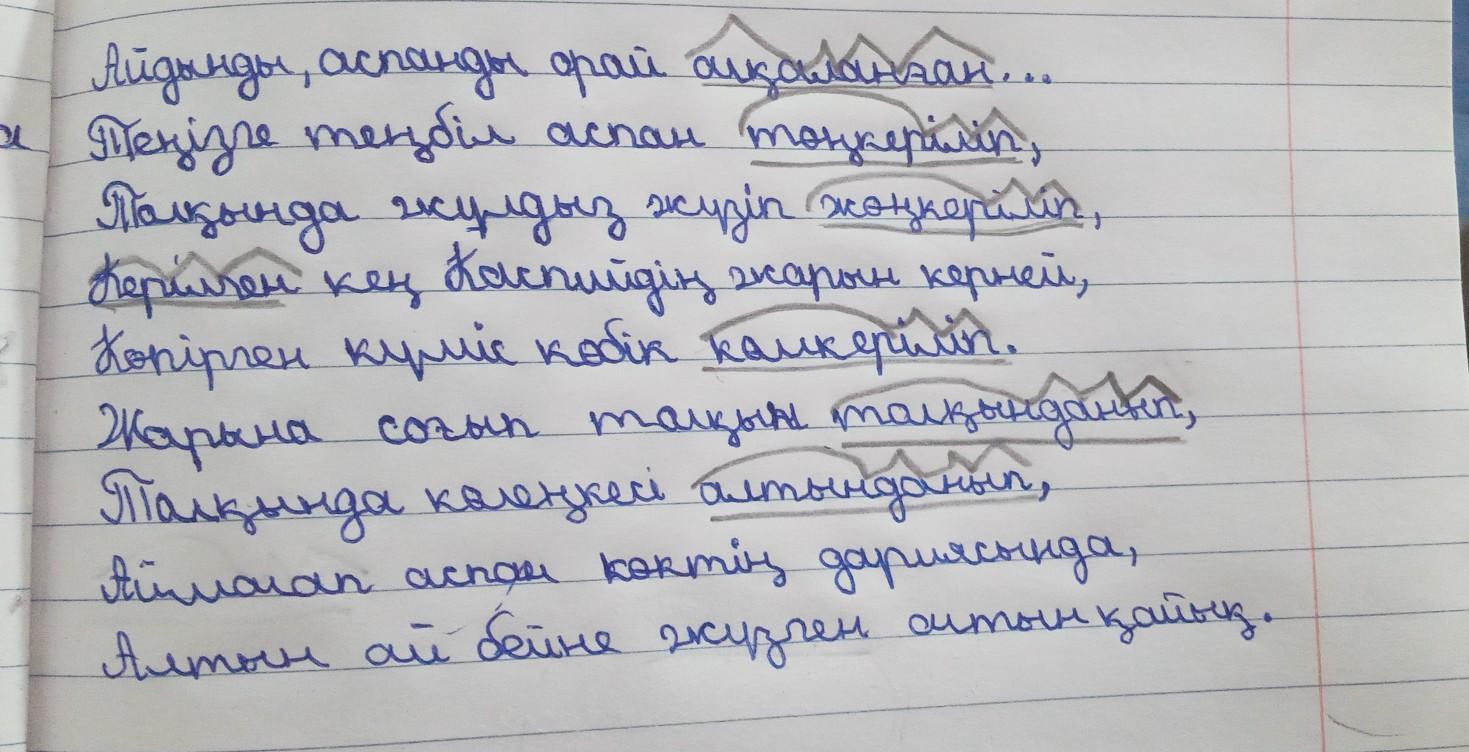 Айдынды, аспанды орай алқаланған...
Теңізге теңбіл аспан төңкеріліп,
Толқында жұлдыз жүзіп жөңкеріліп,
Керілген кең Каспийдің жарын керней,
Көпірген күміс көбік көмкеріліп.
Жарына соғып толқын толқынданып,
Толқында көлеңкесі алтынданып,
Аймалап аспан көктің дариясында,
Алтын ай бейне жүзген алтын қайық.